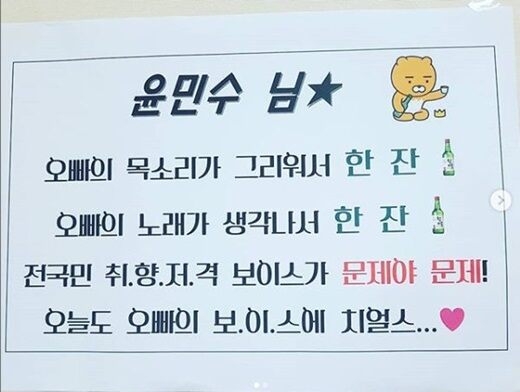 윤민수 님★
오빠의 목소리가 그리워서 한 잔
오빠의 노래가 생각나서 한 잔
전국민 취.향.저.격 보이스가 문제야 문제!
오늘도 오빠의 보.이.스에 치얼스...♥